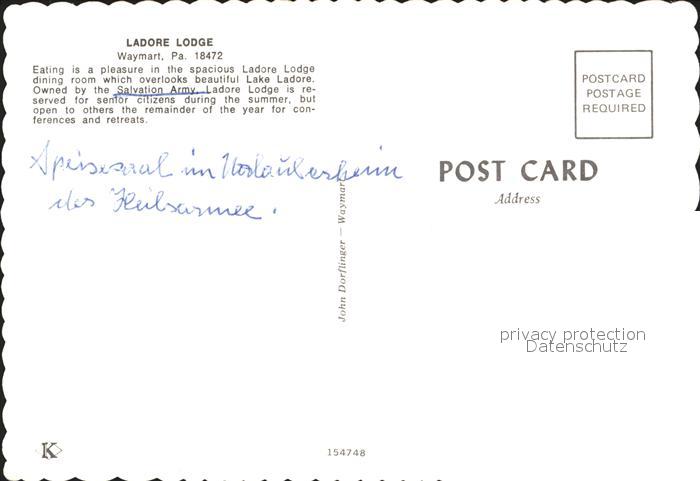 LADORE LODGE
Waymart, Pa. 18472
Eating is a pleasure in the spacious Ladore Lodge
dining room which overlooks beautiful Lake Ladore.
Owned by the Salvation Army, Ladore Lodge is re-
served for senior citizens during the summer, but
open to others the remainder of the year for con-
ferences and retreats.
Speisesaal im Urlauberheim
des Heilsarmee.
POSTCARD
POSTAGE
REQUIRED
POST CARD
Address
John Dorflinger — Waymar
privacy protection
Datenschutz
K
154748